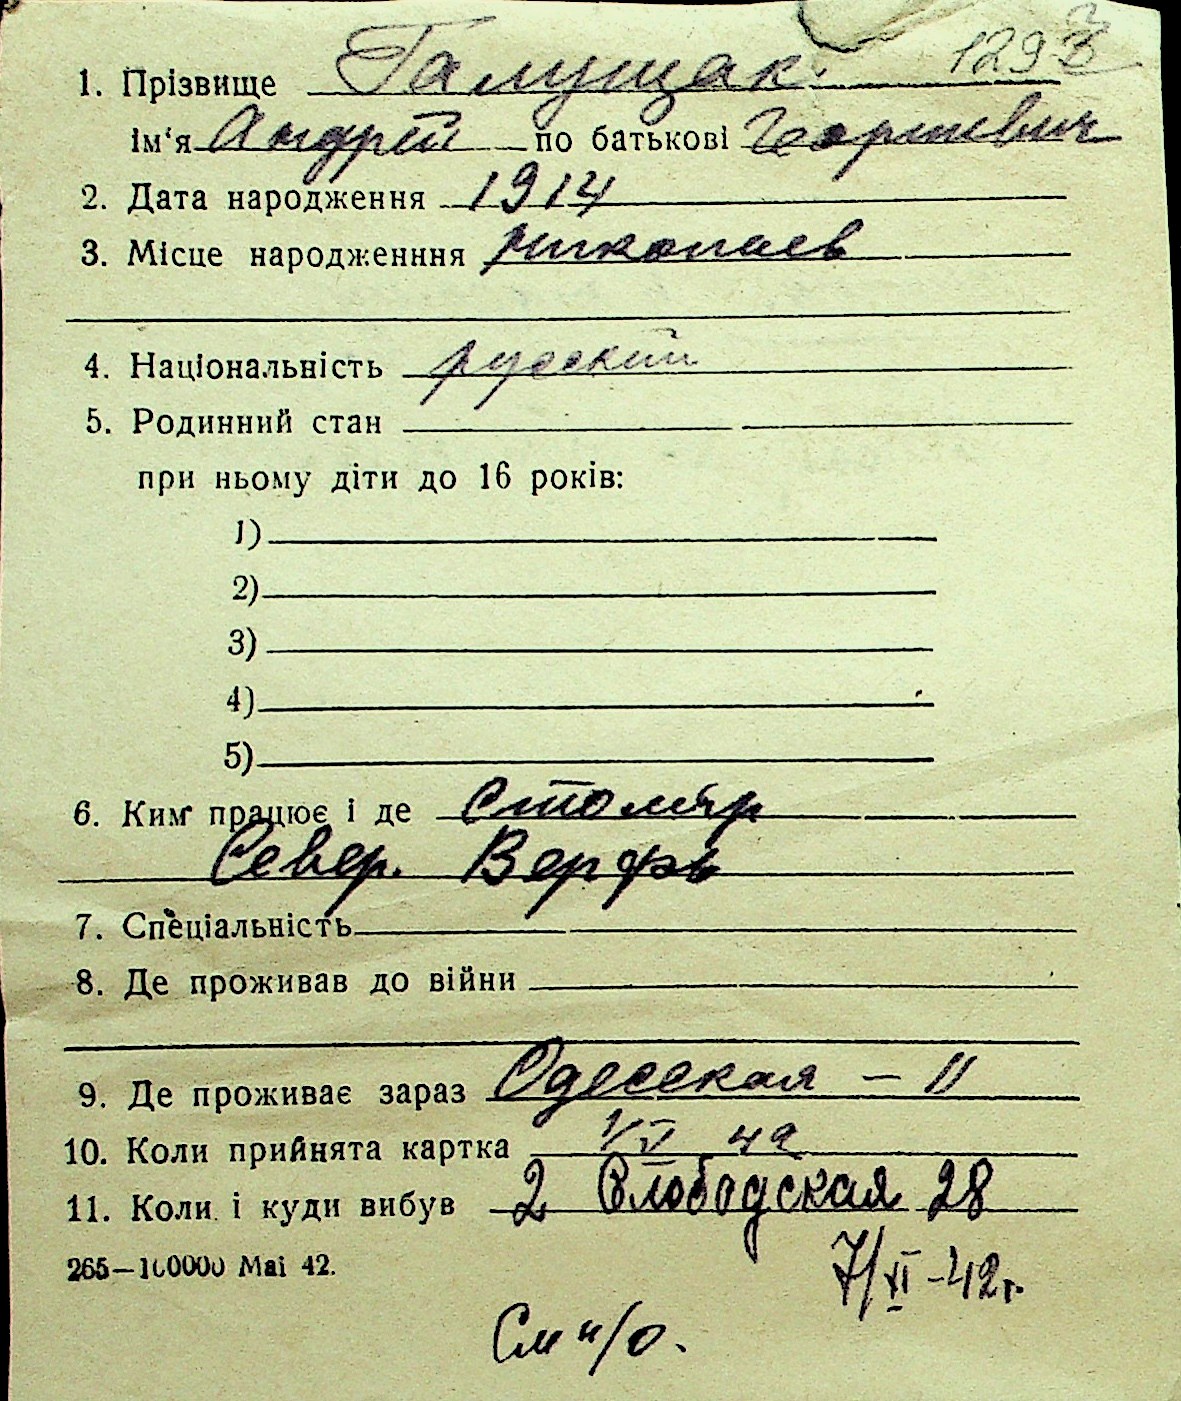 1293
1. Прізвище Галущак.
ім'я Андрей по батькові Георгиевич
2. Дата народження 1914
3. Місце народженння Николаев
4. Національність русский
5. Родинний стан
при ньому діти до 16 років:
1)
2)
3)
4)
5)
6. Ким працює і де столяр
Север. Верфь
7. Спеціальність
8. Де проживав до війни
9. Де проживає зараз Одесская – 11
10. Коли прийнята картка 42
11. Коли і куди вибув 2 Слободская 28
265—100000 Маі 42.
7/VI -42г.
См н/о.